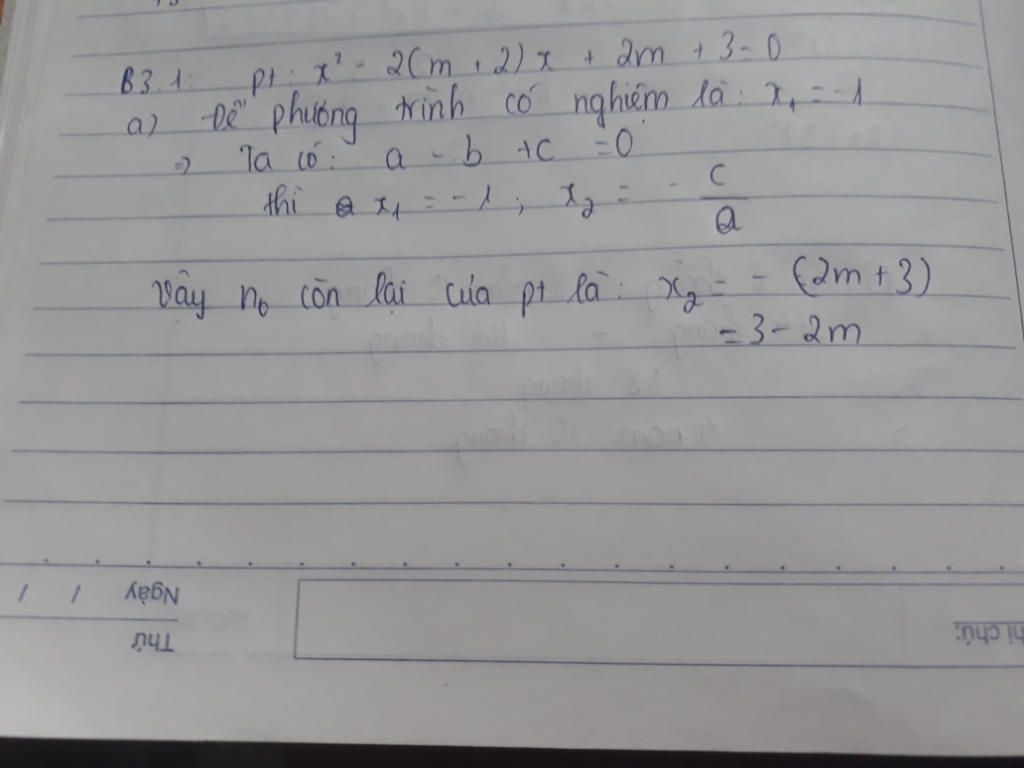 B3.1: pt: x² - 2(m + 2)x + 2m + 3 = 0
a) Để phương trình có nghiệm là: x₁ = -1
=> Ta có: a - b + c = 0
thì x₁ = -1 ; x₂ = - c/a
Vậy n₀ còn lại của pt là: x₂ = - (2m + 3)
= 3 - 2m
Ngày / /
Thứ
hi chú: